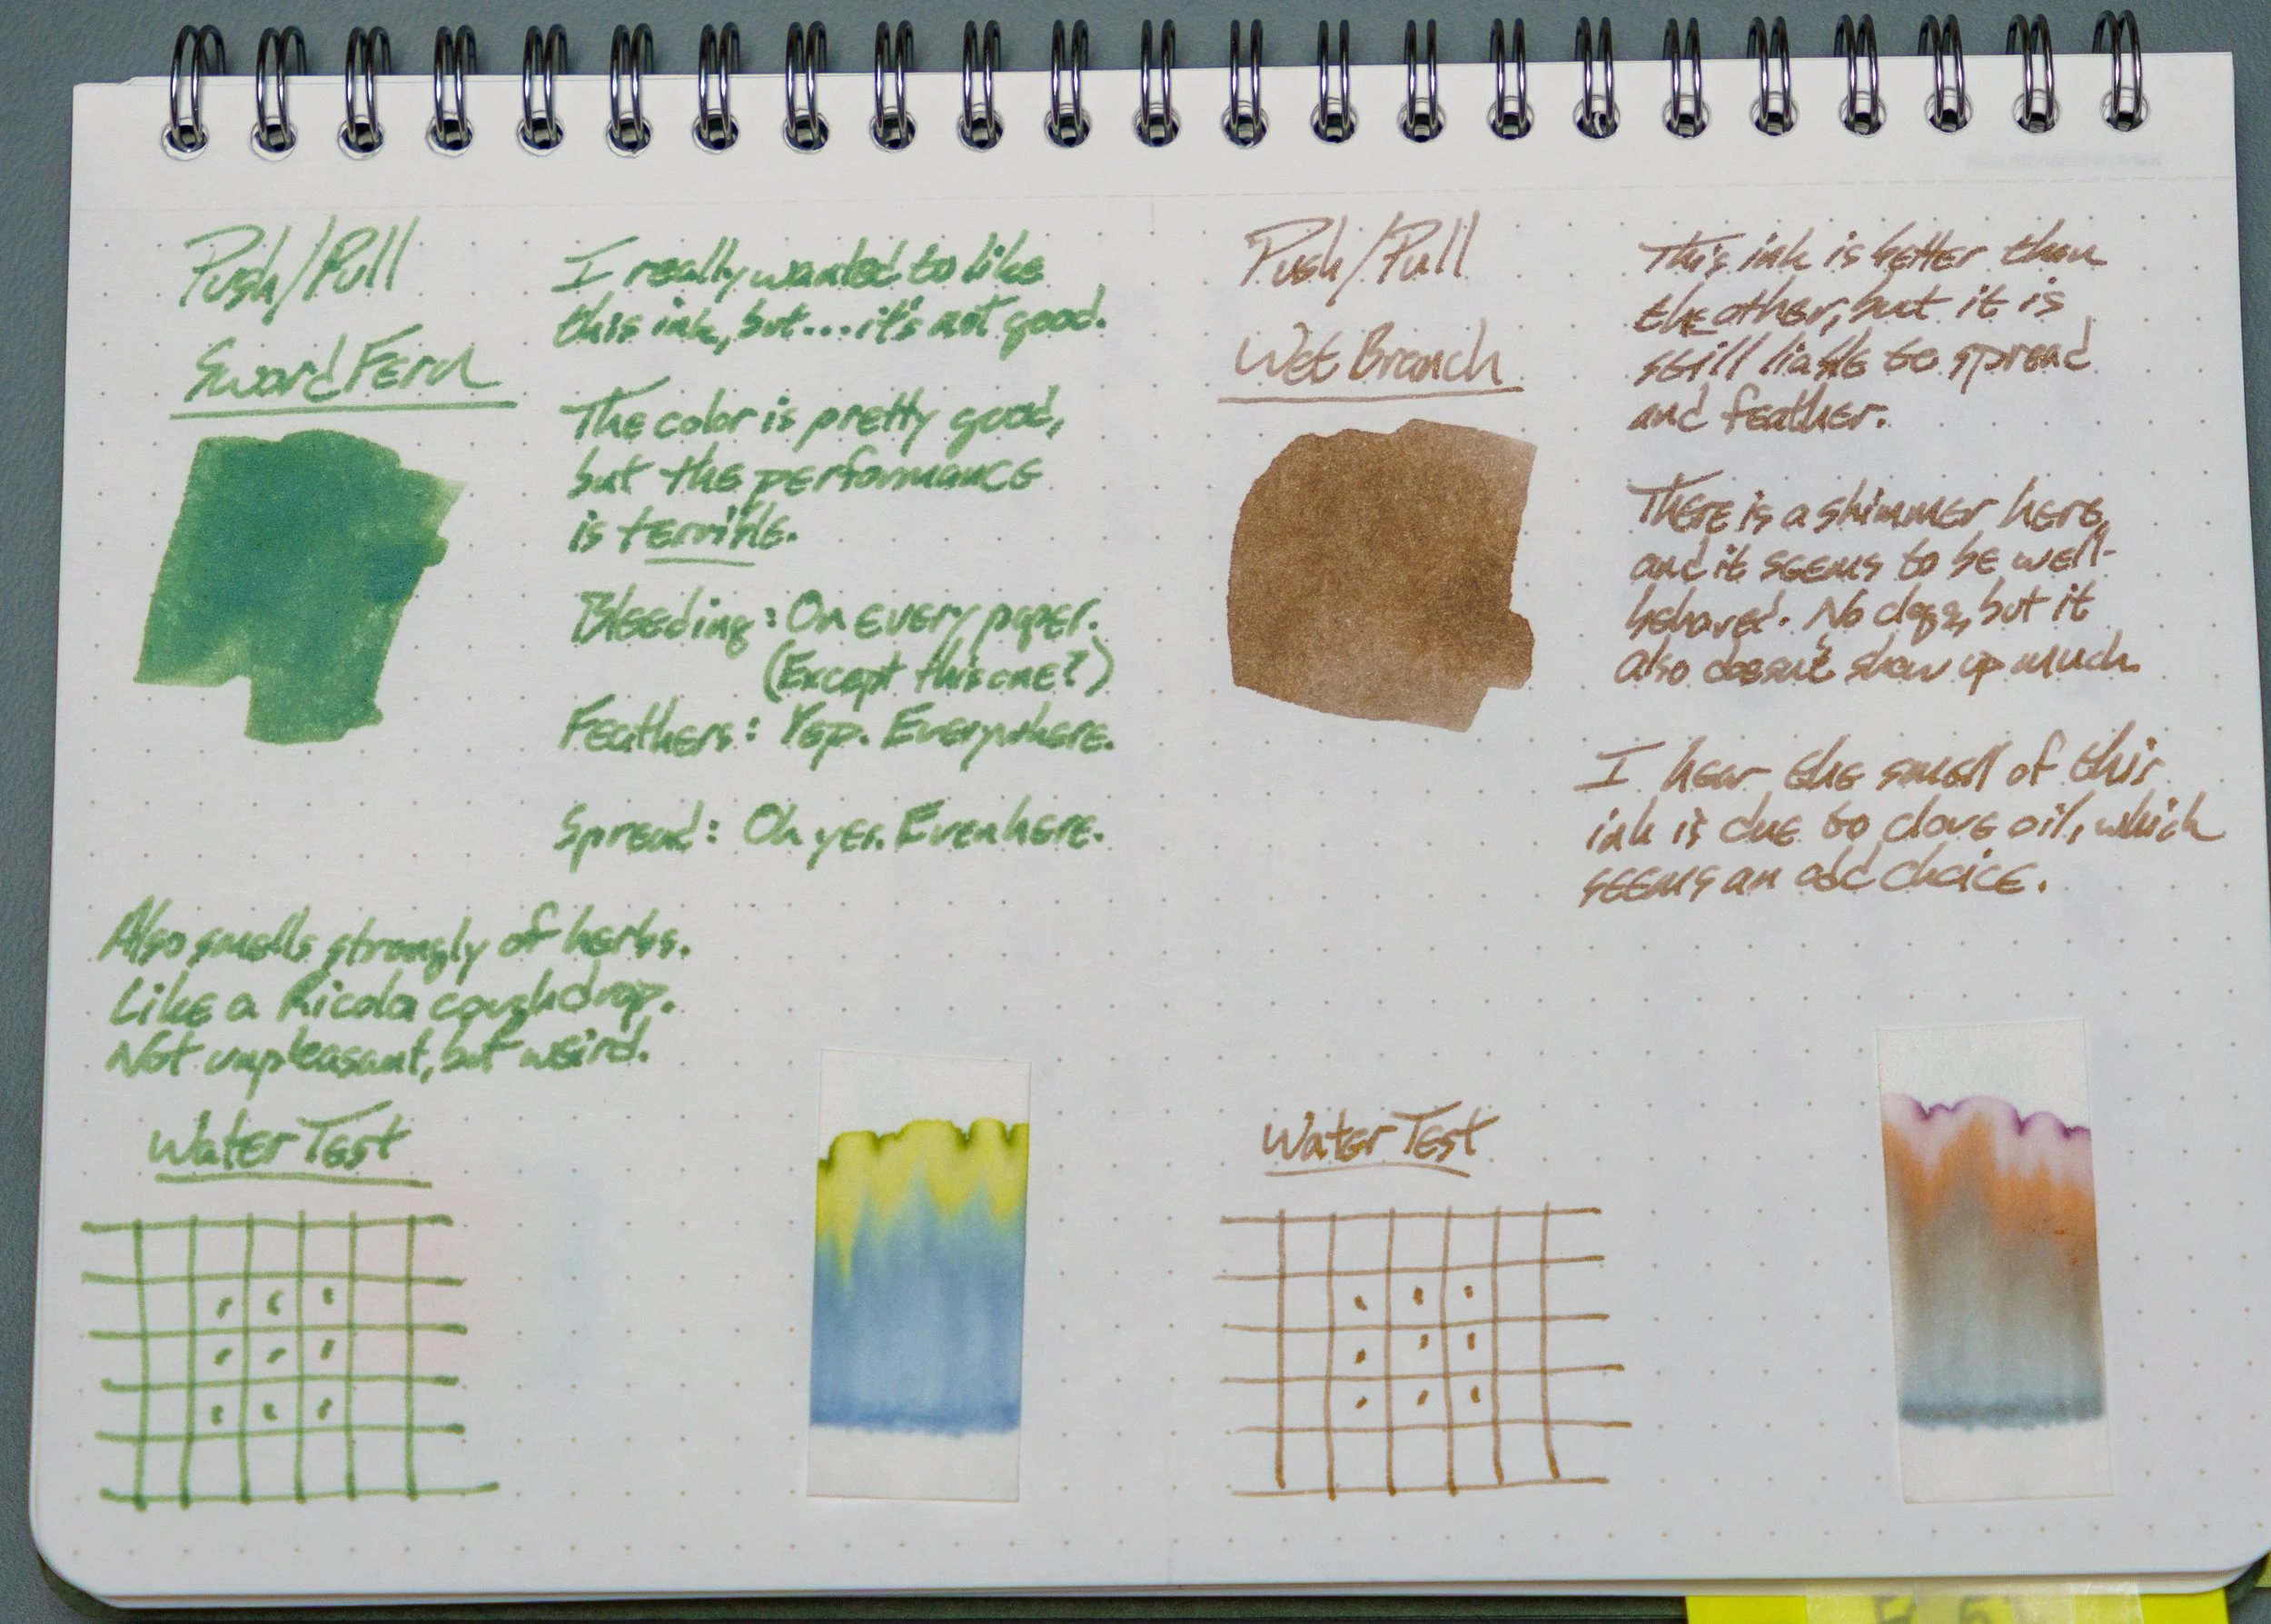 Push/Pull
Sword Fern
I really wanted to like
this ink, but... it's not good.
The color is pretty good,
but the performance
is terrible.
Bleeding: On every paper.
(Except this one?)
Feathers: Yep. Everywhere.
Spread: Oh yes. Even here.
Also smells strongly of herbs.
Like a Ricola coughdrop.
Not unpleasant, but weird.
Water Test
Push/Pull
Wet Branch
This ink is better than
the other, but it is
still liable to spread
and feather.
There is a shimmer here,
and it seems to be well-
behaved. No clogs, but it
also doesn't show up much.
I hear the smell of this
ink is due to clove oil, which
seems an odd choice.
Water Test